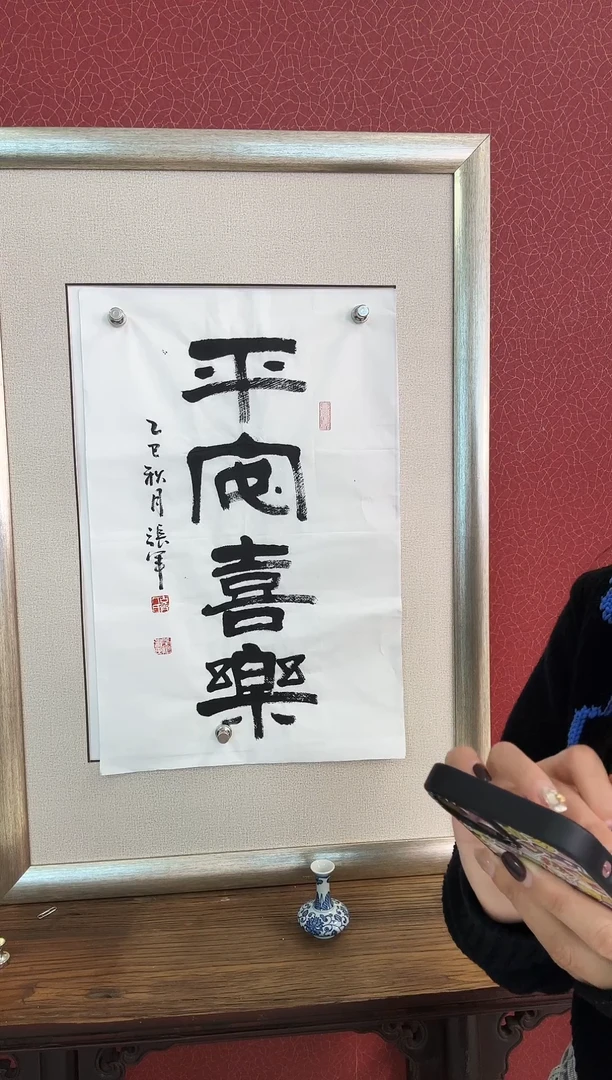 平安喜樂
乙巳秋月張軍